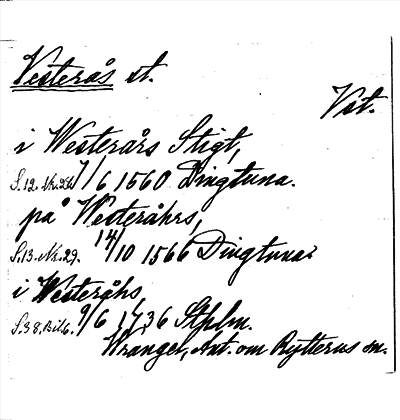 Vesterås st.
Vst.
i Westerårs Stigt,
S.12. Nr.26. 7/6 1560 Dingtuna.
på Westeråhrs,
S.13. Nr.29. 14/10 1566 Dingtuna.
i Westeråhs,
S.38. Bil6. 9/6 1736 Sthlm.
Wrangel, Ant. om Rytterns sn.